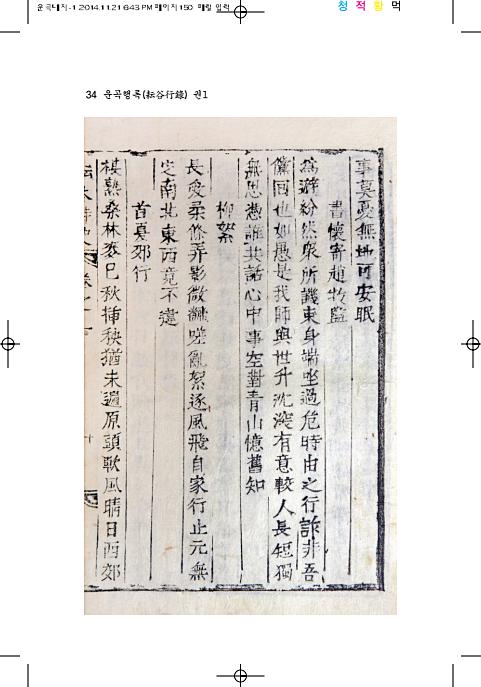 운곡내지-1 2014.11.21 6:43 PM 페이지150 매킬 입력
청 적 황 먹
34 운곡행록(耘谷行錄) 권1
事莫憂無地可安眠
書懷寄趙牧監
爲避紛然衆所譏束身端坐過危時由之行詐非吾
黨回也如愚是我師與世升沈深有意較人長短獨
無思憑誰共話心中事空對青山憶舊知
柳絮
長愛柔條弄影微飜嗟亂絮逐風飛自家行止元無
定南北東西竟不違
首夏郊行
椹熟桑林麥已秋揷秧猶未遍原頭歌風晴日西郊